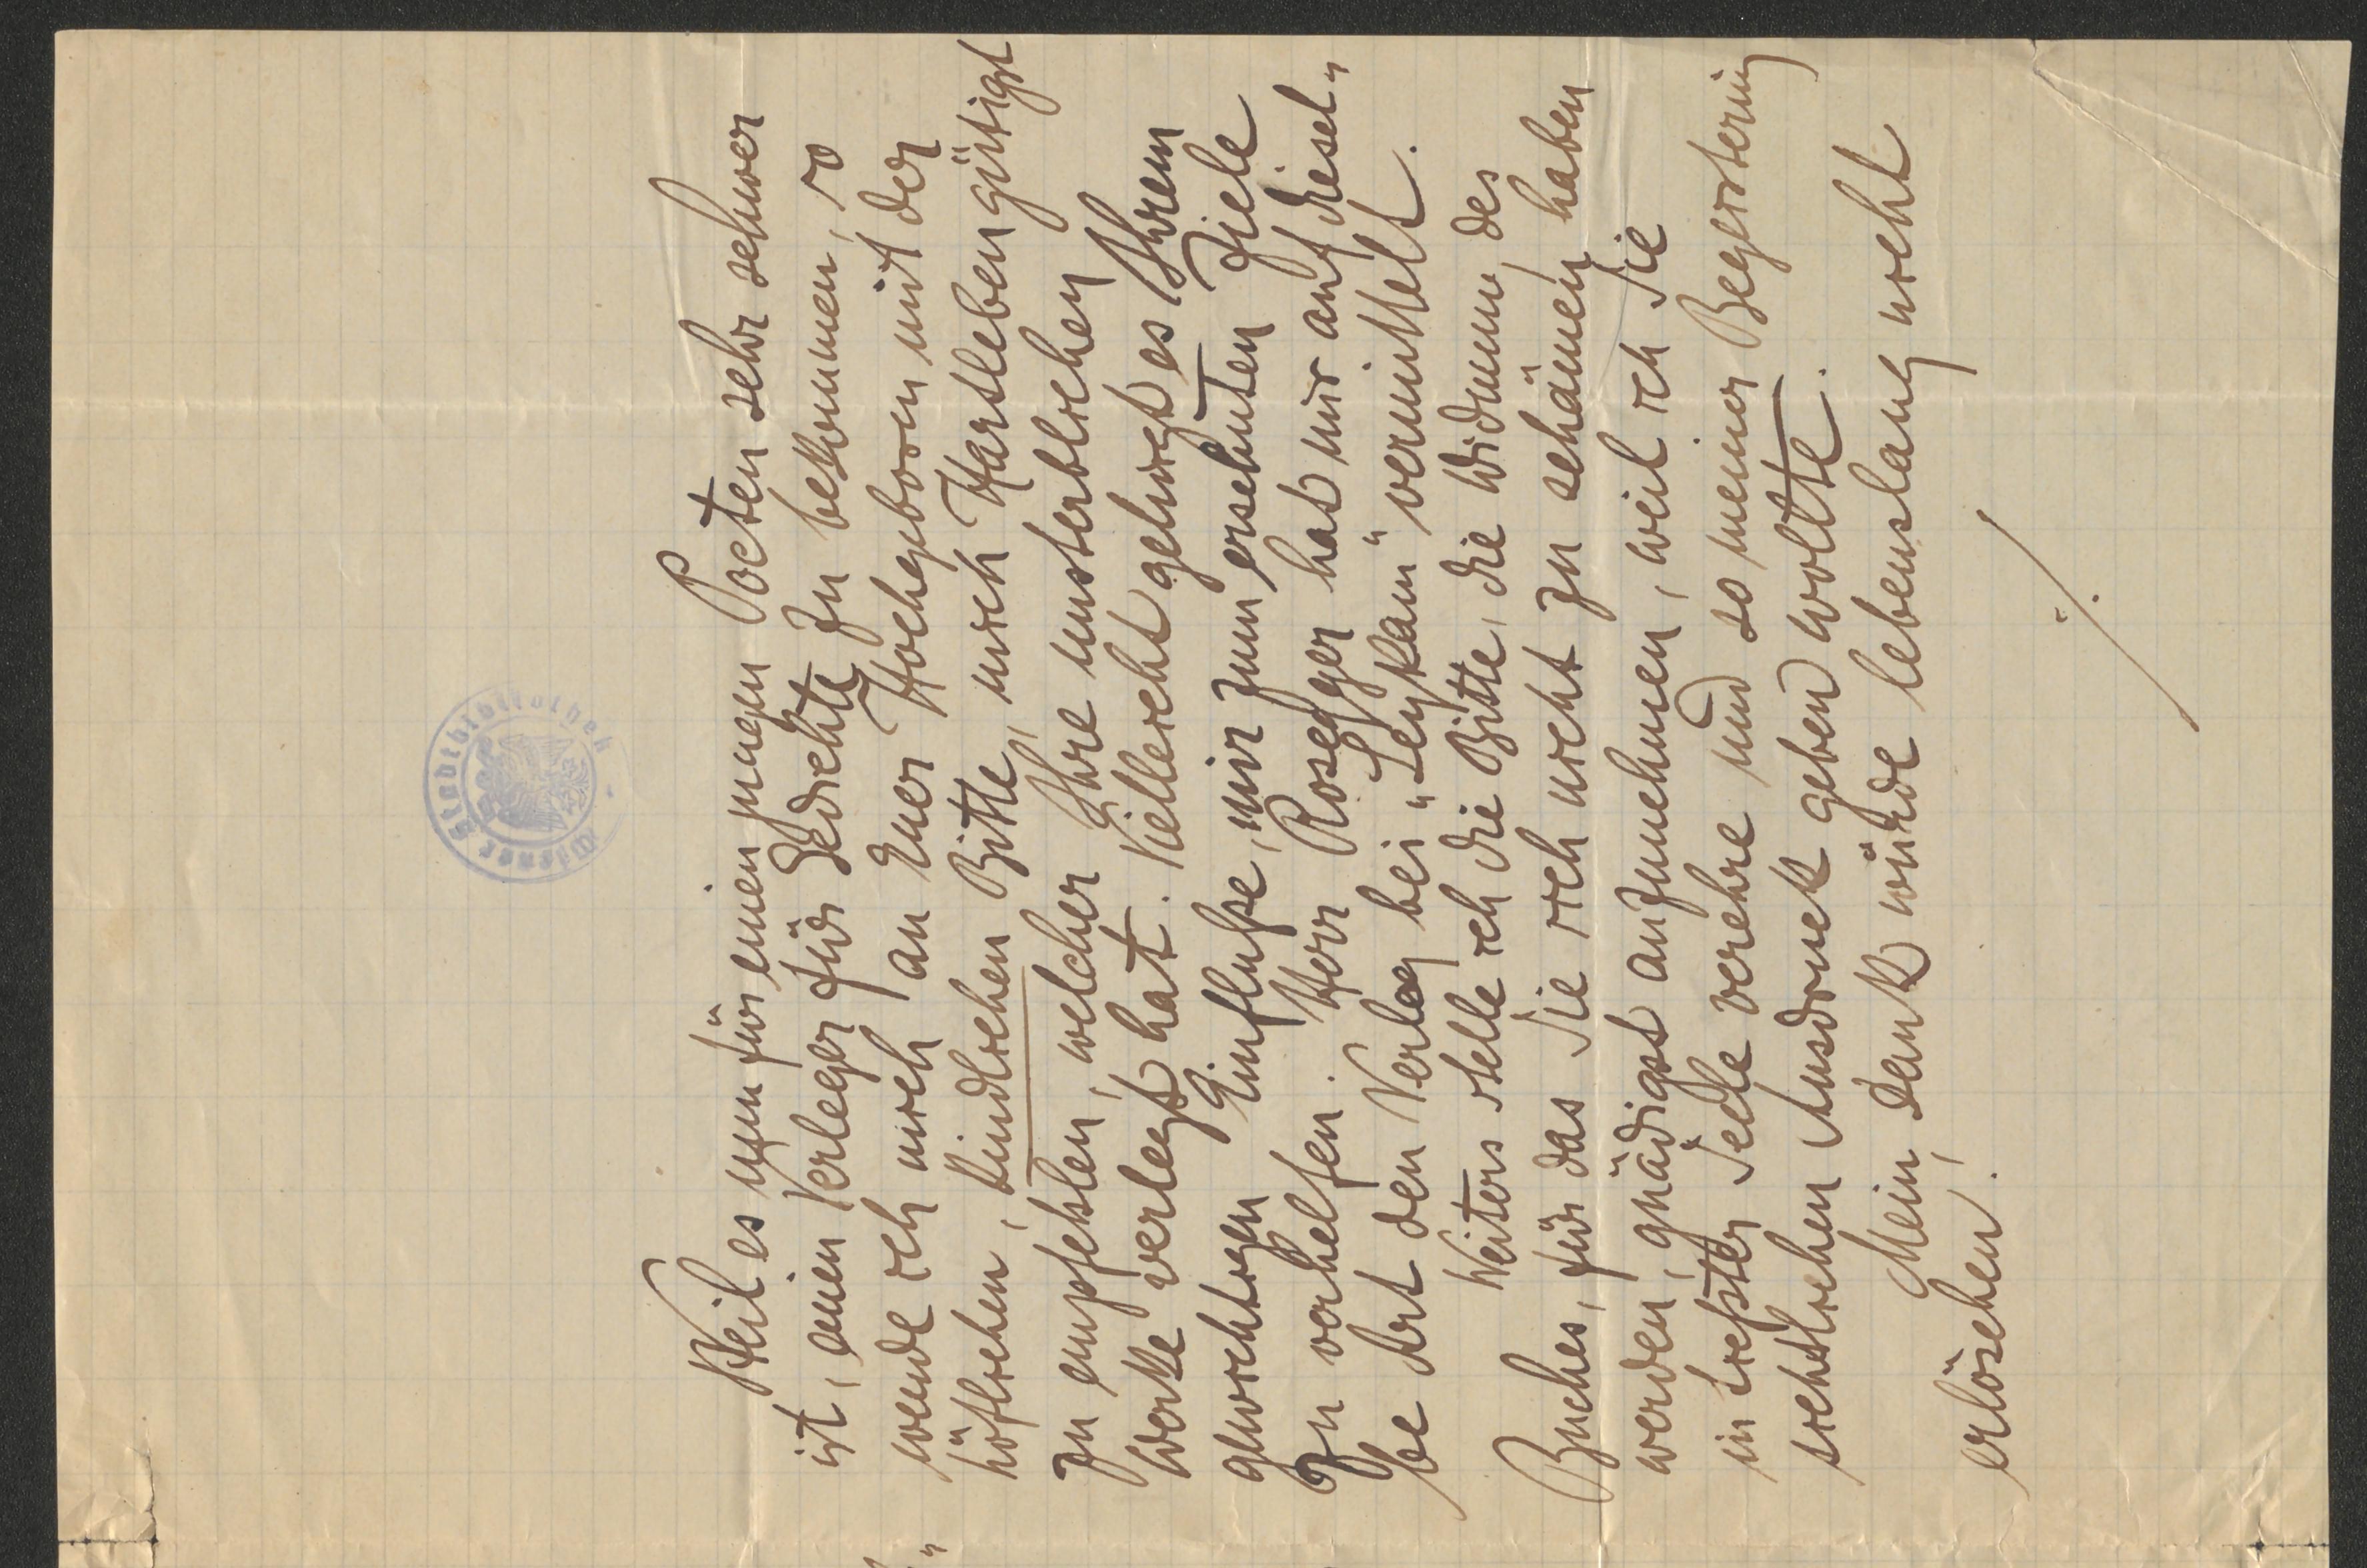 Weil es nun für einen jungen Poeten sehr schwer
ist, einen Verleger für Gedichte zu bekommen, so
wende ich mich an Euer Hochgeboren mit der
höflichen, kindlichen Bitte, mich Hartleben gütigst
zu empfehlen, welcher Ihre unsterblichen
Werke verlegt hat. Vielleicht gelingt es Ihrem
gewichtigen Einfluße, mir zum ersehnten Ziele
zu verhelfen. Herr Rosegger hat mir auf diesel„
be Art den Verlag bei „Leykam“ vermittelt.
Weiters stelle ich die Bitte, die Widmung des
Buches, für das Sie sich nicht zu schämen haben
werden, gnädigst anzunehmen, weil ich Sie
in tiefster Seele verehre und so meiner Begeisterung
sichtlichen Ausdruck gebend wollte.
Mein Dank würde lebenslang nicht
erlöschen!
./.
Wiener Stadtbibliothek